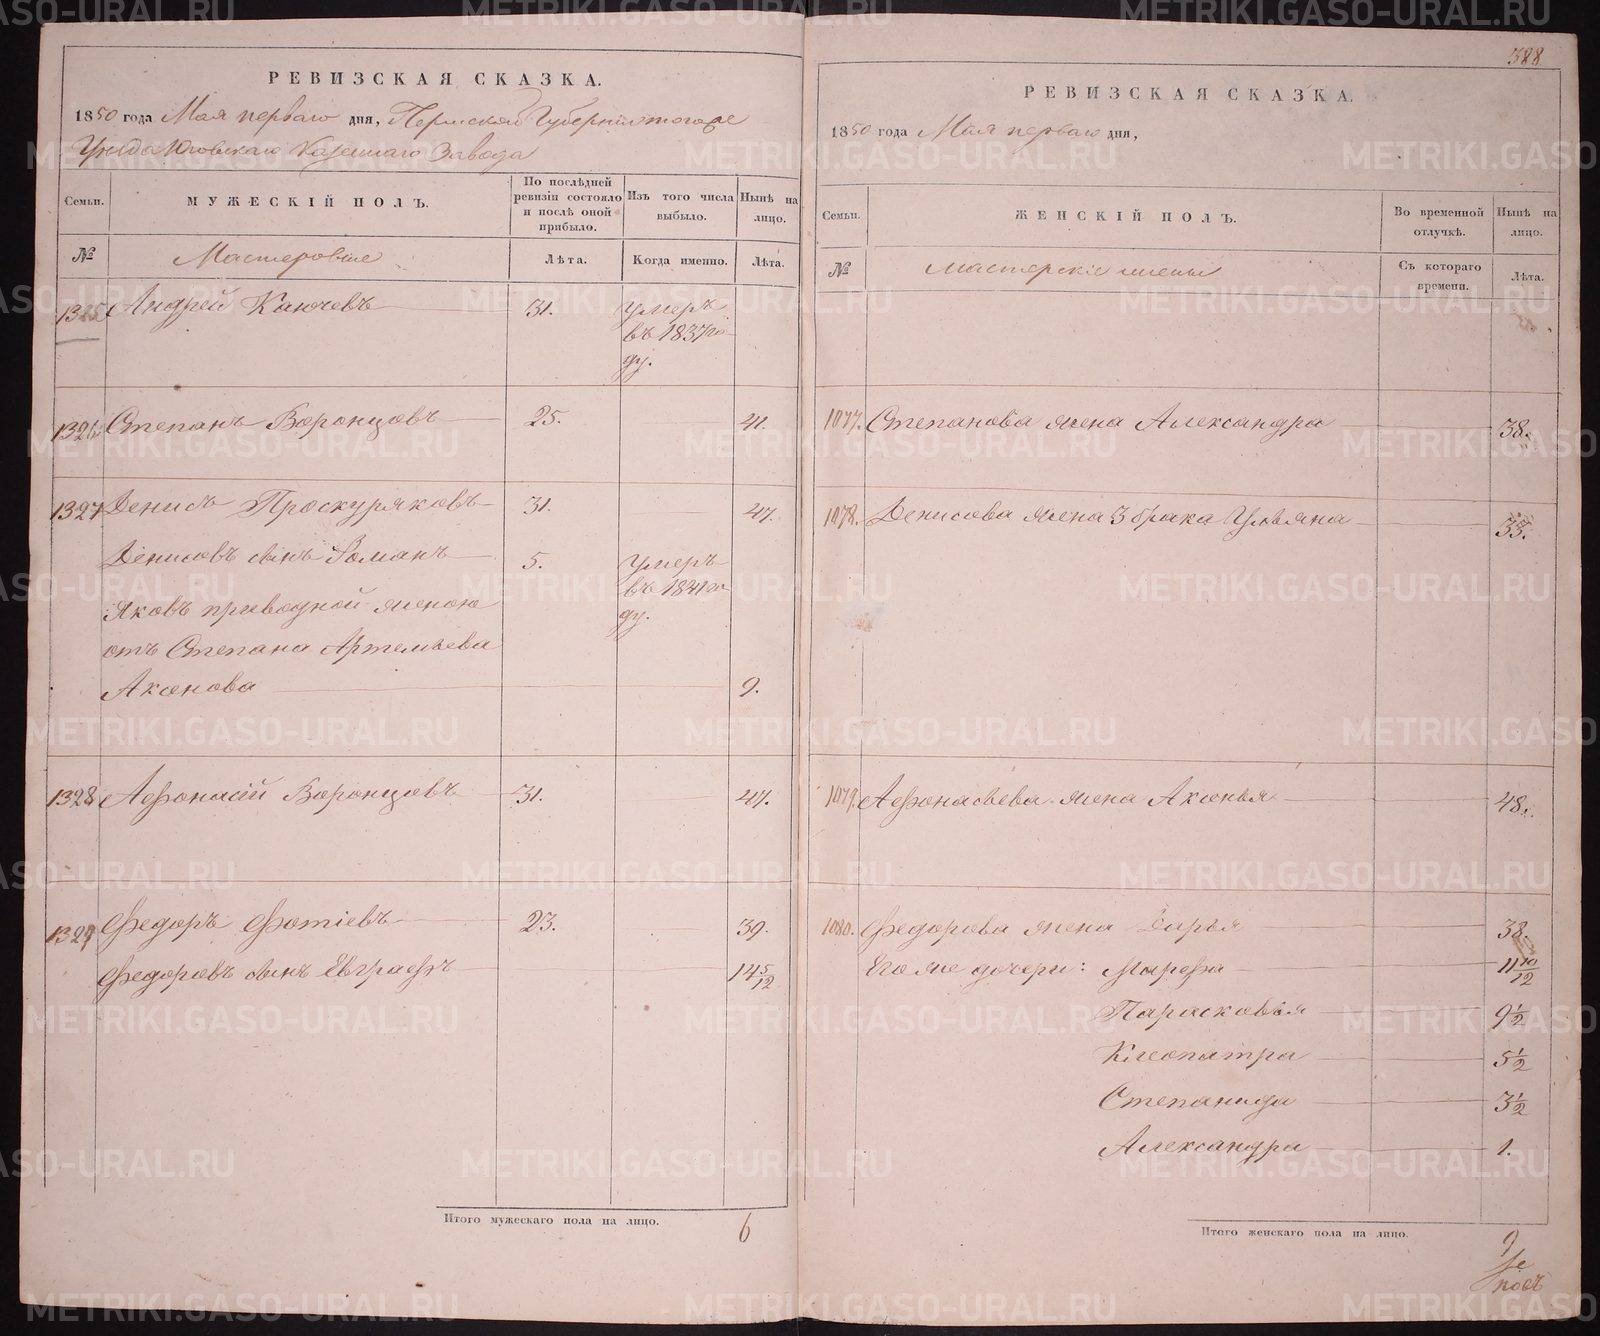 РЕВИЗСКАЯ СКАЗКА.
1850 года Мая перваго дня, Пермской Губернии тогоже
Уезда Юговскаго Казеннаго Завода
Семьи.
МУЖЕСКІЙ ПОЛЪ.
По послѣдней ревизіи состояло и послѣ оной прибыло.
Изъ того числа выбыло.
Нынѣ на лицо.
№
Мастеровые
Лѣта.
Когда именно.
Лѣта.
1325 Андрей Ключевъ 31. умеръ
въ 1837 го-
ду.
1326 Степанъ Воронцовъ 25. 41.
1327 Денисъ Проскуряковъ 31. 47.
Денисовъ сынъ Романъ 5. умеръ
въ 1841 го
ду.
Яковъ приводной женою
отъ Степана Артемьева
Аксенова 9.
1328 Афонасій Воронцовъ 31. 47.
1329 Федоръ Фотіевъ 23. 39.
Федоровъ сынъ Евграфъ 14 5/12
Итого мужескаго пола на лицо. 6
388
РЕВИЗСКАЯ СКАЗКА.
1850 года Мая перваго дня,
Семьи.
ЖЕНСКІЙ ПОЛЪ.
Во временной отлучкѣ.
Нынѣ на лицо.
№
мастерскіе жены
Съ котораго времени.
Лѣта.
1077. Степанова жена Александра 38.
1078. Денисова жена 3 брака Ульяна 33.
1079. Афонасьева жена Аксинья 48.
1080. Федорова жена Дарья 38.
Его же дочери: Марфа 11 10/12
Парасковья 9 1/2
Клеопатра 5 1/2
Степанида 3 1/2
Александра 1.
Итого женскаго пола на лицо. 9
METRIKI.GASO-URAL.RU